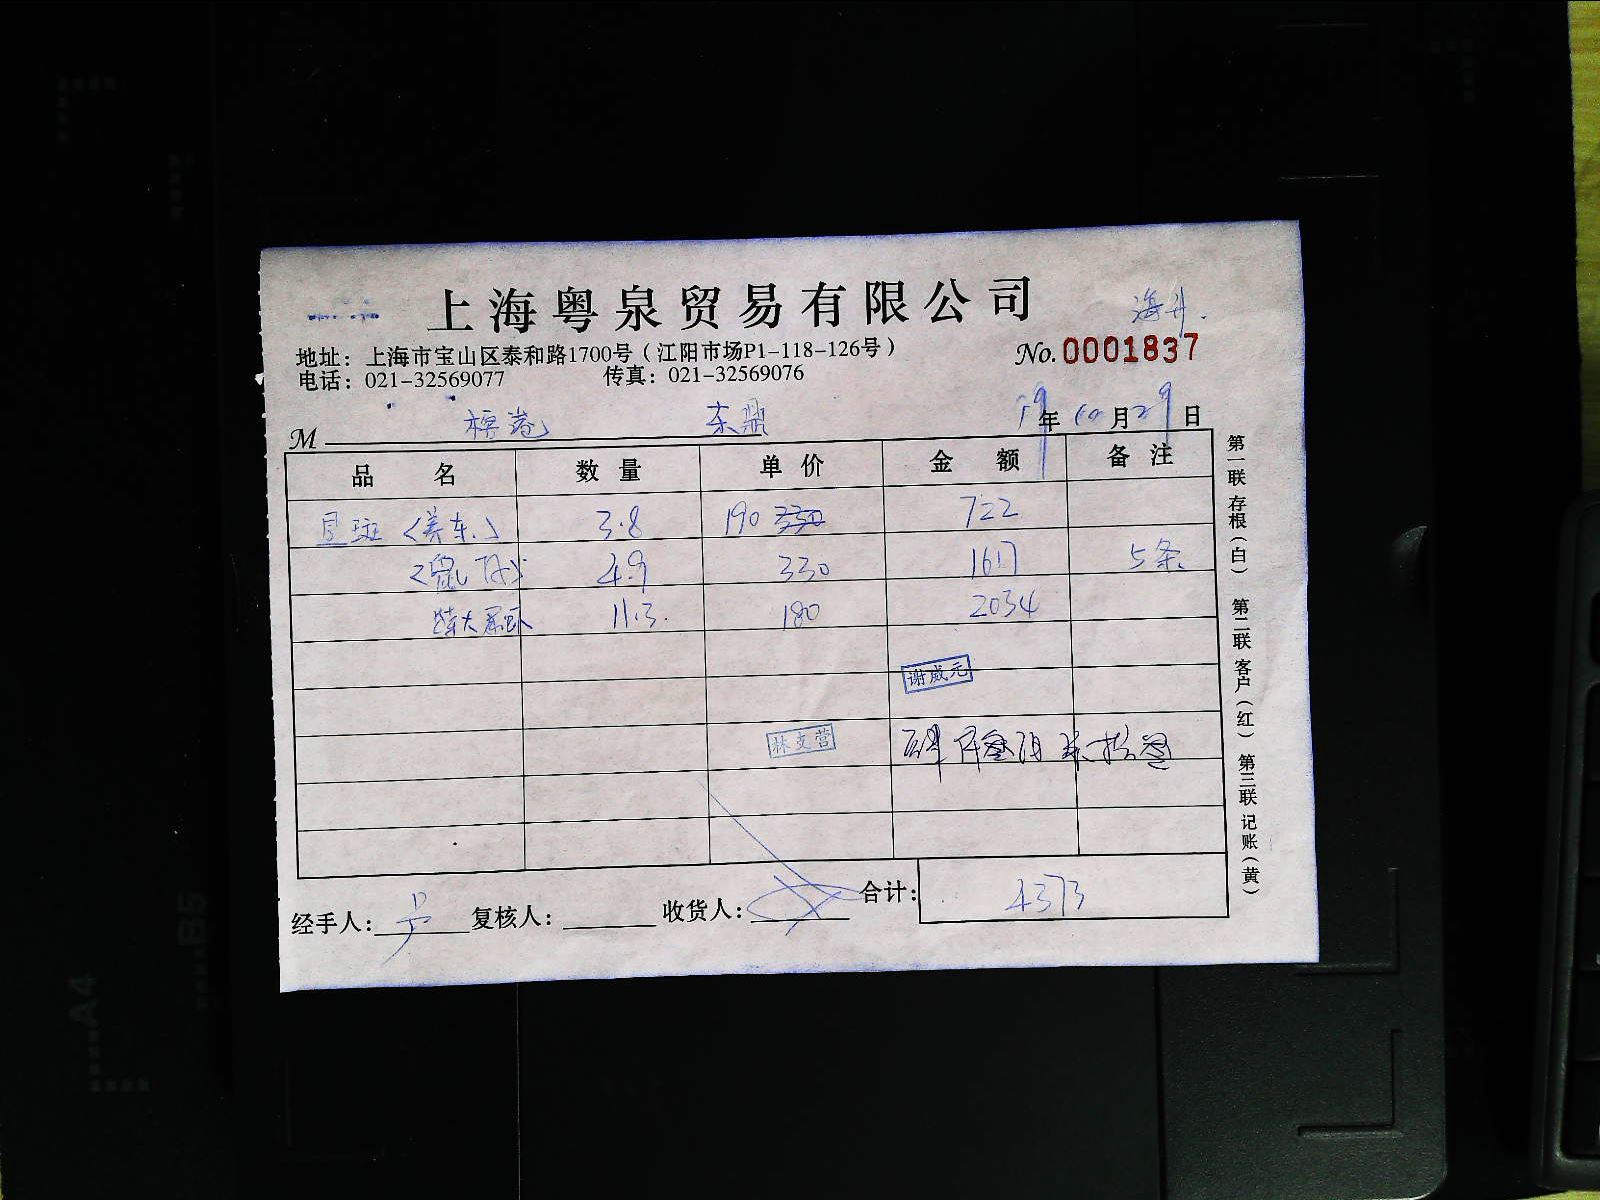 上海粤泉贸易有限公司
海升.
地址：上海市宝山区泰和路1700号（江阳市场P1-118-126号）
No. 0001837
电话：021-32569077 传真：021-32569076
M 东鼎 19年10月29日
品名 数量 单价 金额 备注
星斑 3.8 190 722
4.9 330 1617 5条
特大 11.3. 180 2034
谢威元
林支营
经手人： 复核人： 收货人： 合计： 4373
第一联 存根（白） 第二联 客户（红） 第三联 记账（黄）
B5
A4